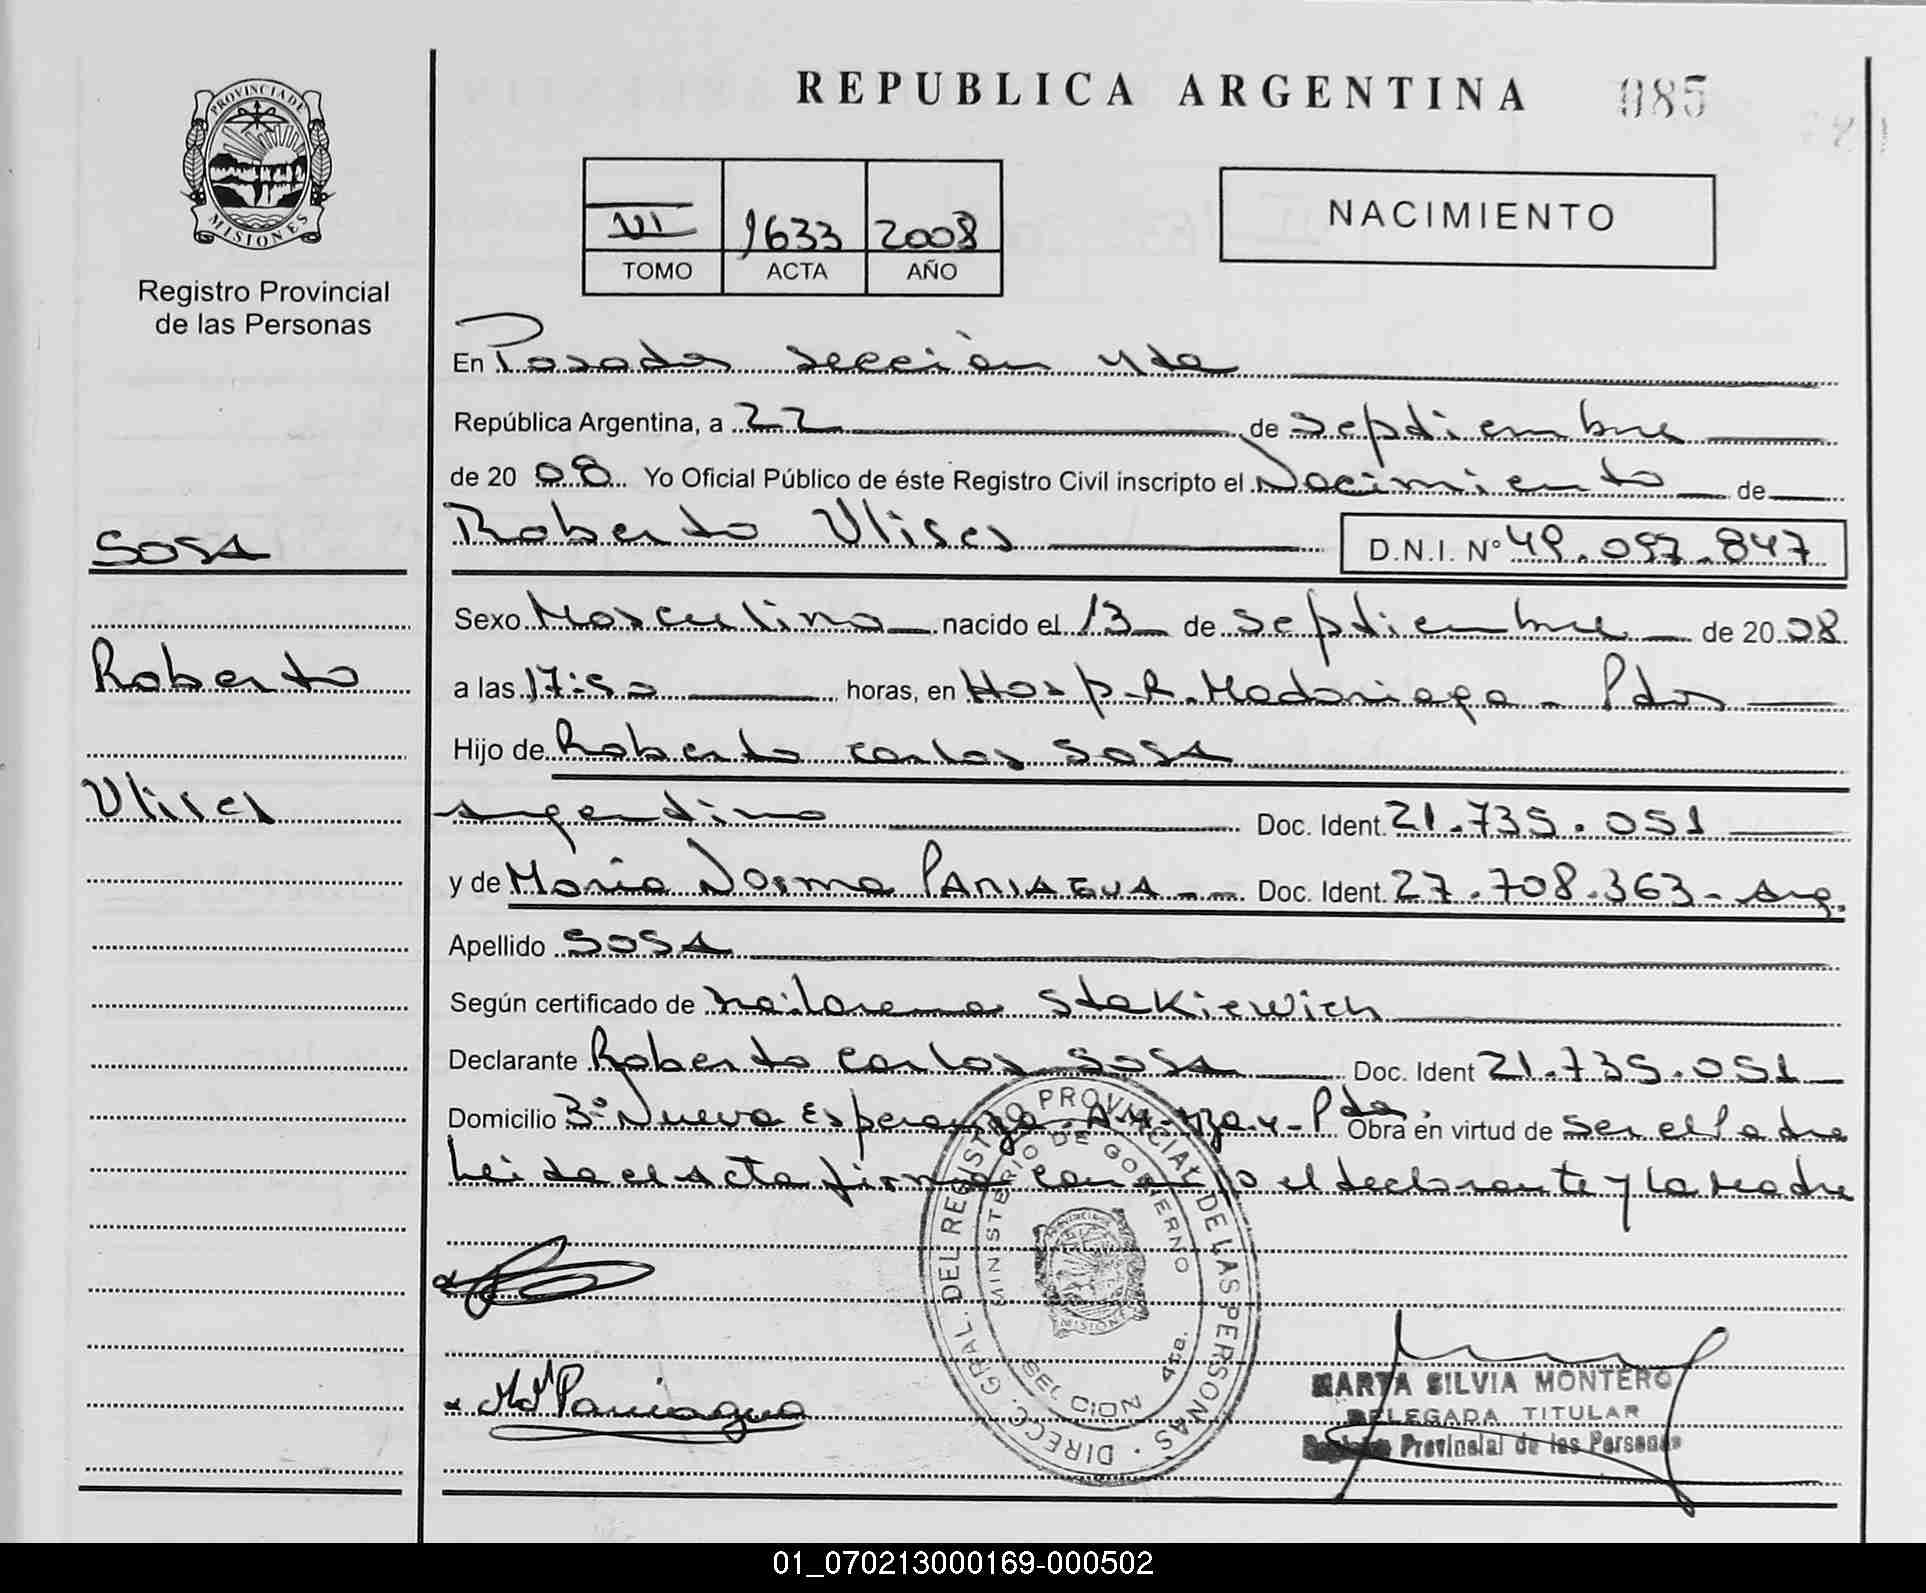 REPUBLICA ARGENTINA 985
PROVINCIA DE
MISIONES
Registro Provincial
de las Personas
VI 1633 2008
TOMO ACTA AÑO
NACIMIENTO
SOSA
Roberto
Ulises
En Posadas sección 4ta
República Argentina, a 22 de septiembre
de 20 08 Yo Oficial Público de éste Registro Civil inscripto el Nacimiento de
Roberto Ulises D.N.I. N° 49.097.847
Sexo Masculino nacido el 13 de septiembre de 20 08
a las 17:50 horas, en Hosp. R. Madariaga - Pdas
Hijo de Roberto Carlos SOSA
argentino Doc. Ident. 21.735.051
y de Maria Norma PANIAGUA Doc. Ident. 27.708.363 - Arg.
Apellido SOSA
Según certificado de Stakiewich
Declarante Roberto Carlos SOSA Doc. Ident 21.735.051
Domicilio B° Nueva Esperanza Pdas. Obra en virtud de ser el Padre
Leida el acta firman conmigo el declarante y la Madre
DIRECC. GRAL. DEL REGISTRO PROVINCIAL DE LAS PERSONAS
MINISTERIO DE GOBIERNO
SECCION 4ta.
MISIONES
Ma Paniagua
MARTA SILVIA MONTERO
DELEGADA TITULAR
Registro Provincial de las Personas
01_070213000169-000502